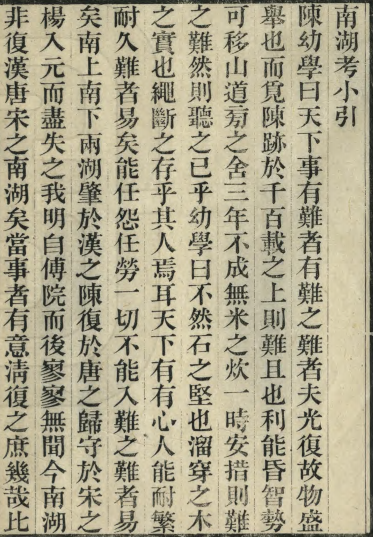 南湖考小引
陳幼學曰天下事有難者有難之難者夫光復故物盛
舉也而覓陳跡於千百載之上則難且也利能昏智勢
可移山道旁之舍三年不成無米之炊一時安措則難
之難然則聽之已乎幼學曰不然石之堅也溜穿之木
之實也繩斷之存乎其人焉耳天下有有心人能耐繁
耐久難者易矣能任怨任勞一切不能入難之難者易
矣南上南下兩湖肇於漢之陳復於唐之歸守於宋之
楊入元而盡失之我明自傅院而後寥寥無聞今南湖
非復漢唐宋之南湖矣當事者有意淸復之庶幾哉比